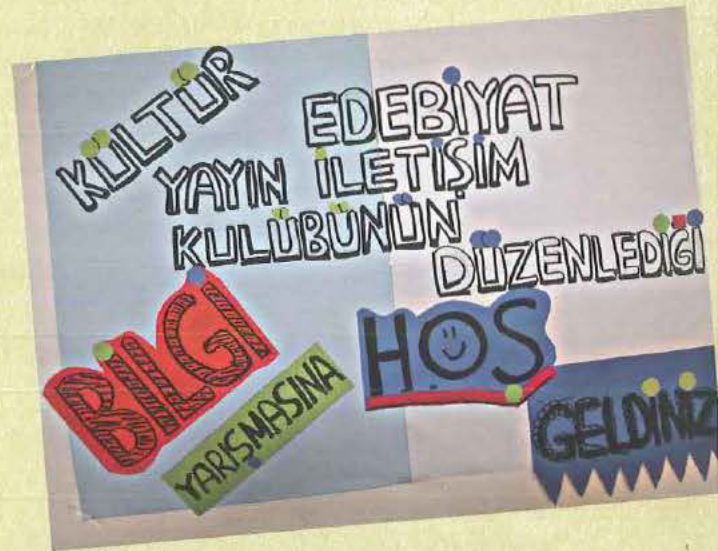 KÜLTÜR EDEBİYAT
YAYIN İLETİŞİM
KULÜBÜNÜN
DÜZENLEDİĞİ
BİLGİ
YARIŞMASINA
HOŞ
GELDİNİZ